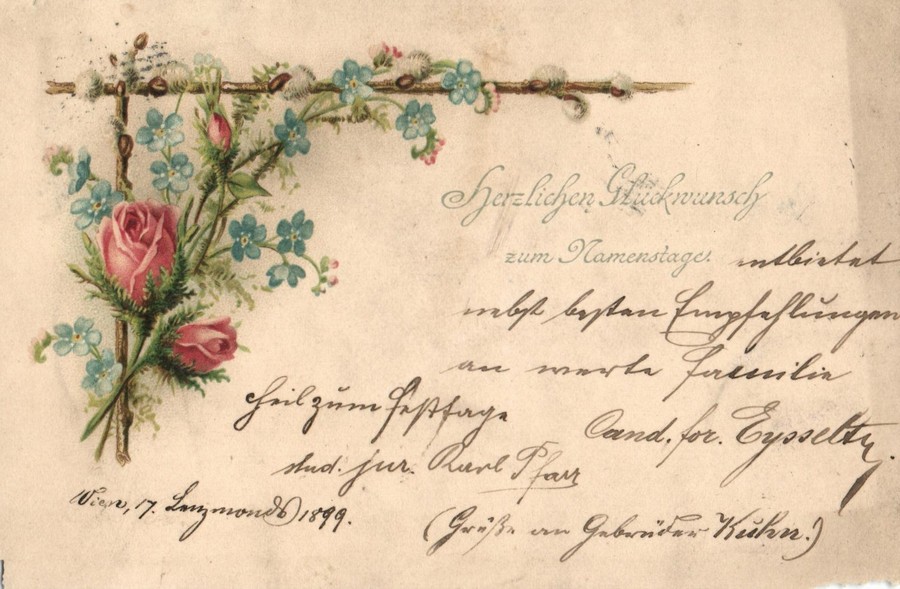 Herzlichen Glückwunsch
zum Namenstage. entbietet
nebst besten Empfehlungen
an werte Familie
Cand. for.
Heil zum Festtage
stud. jur. Karl Pfarr
Wien, 17. Lenzmonds 1899.
(Grüße an Gebrüder Kuhn!)